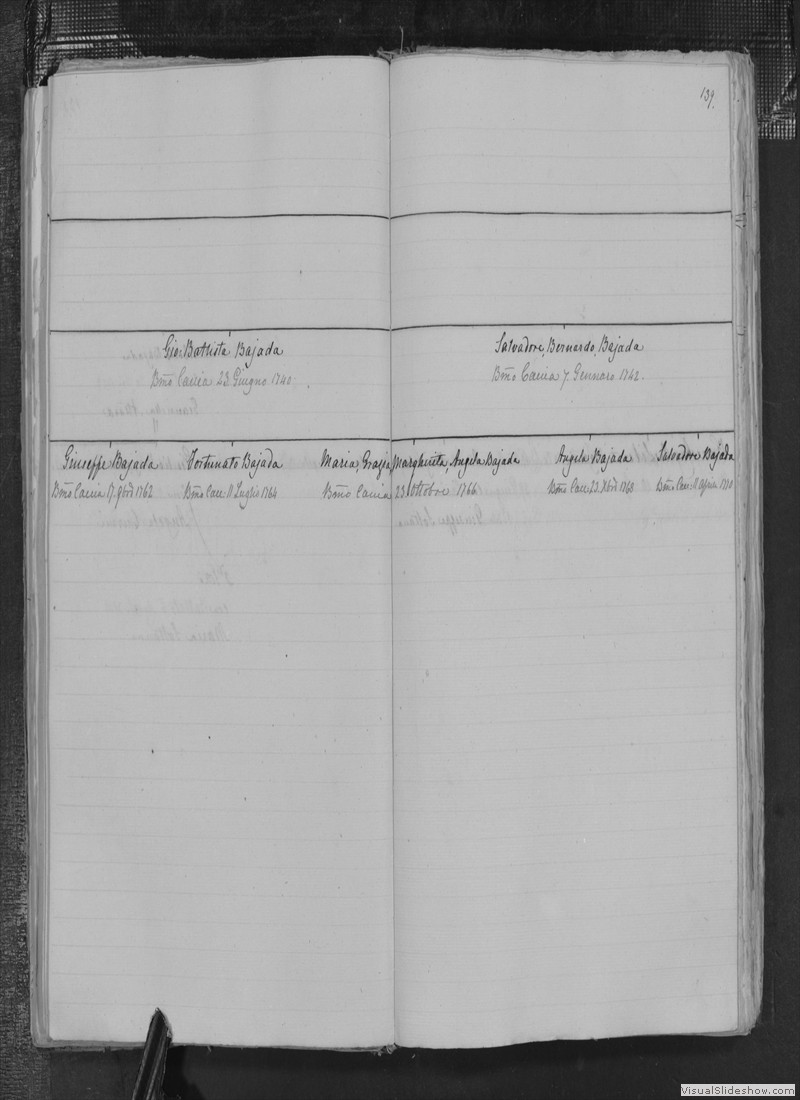 139.
Gio: Battista Bajada
Salvadore, Bernardo, Bajada
Bmo Caccia 23 Giugno 1740
Bmo Caccia 7 Gennaro 1742.
Giuseppe Bajada
Fortunato Bajada
Maria, Grazia, Margharita, Angela Bajada
Angela Bajada
Salvadore Bajada
Bmo Caccia 17. 9bre 1762
Bmo Cacc: 11 Luglio 1764
Bmo Caccia 23 Ottobre 1766
Bmo Cacc: 23. Xbre 1768
Bmo Cacc: 11 Aprile
VisualSlideshow.com